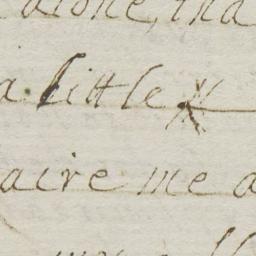 alone, tha
a little
aire me a